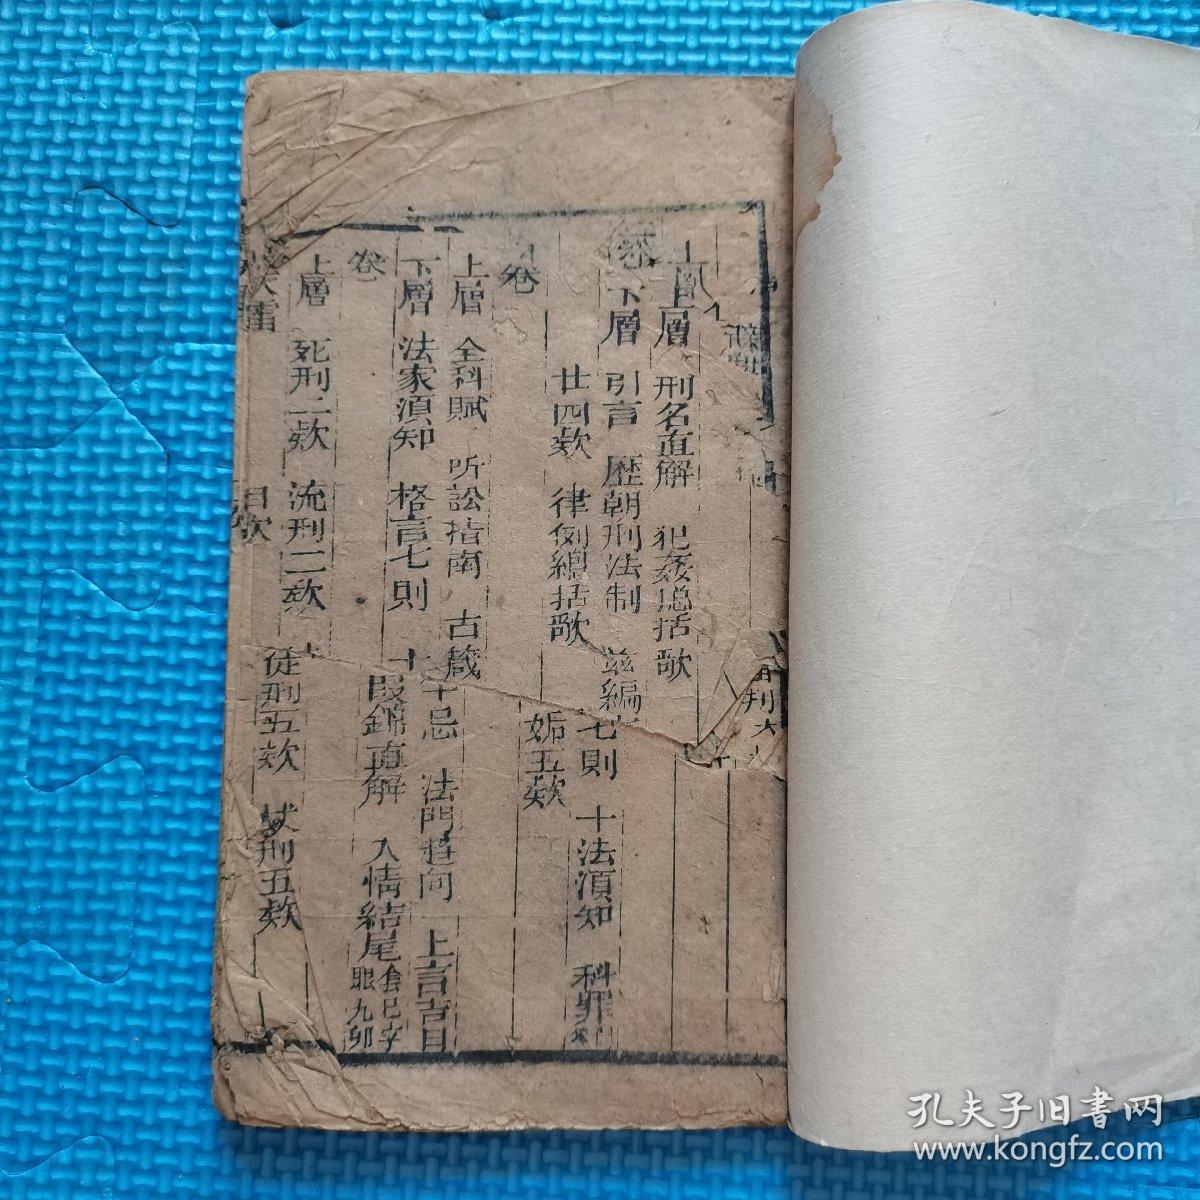 上層 刑名直解 犯姦總括歌
卷
下層 引言 歷朝刑法制 茲編七則 十法須知 科罪
廿四欵 律例總括歌 姤五欵
卷
上層 全科賦 听訟指南 古箴 十忌 法門趋向 上言吉日
下層 法家須知 格言七則 十段錦直解 入情結尾
卷
上層 死刑二欵 流刑二欵 徒刑五欵 杖刑五欵
目次
孔夫子旧書网
www.kongfz.com